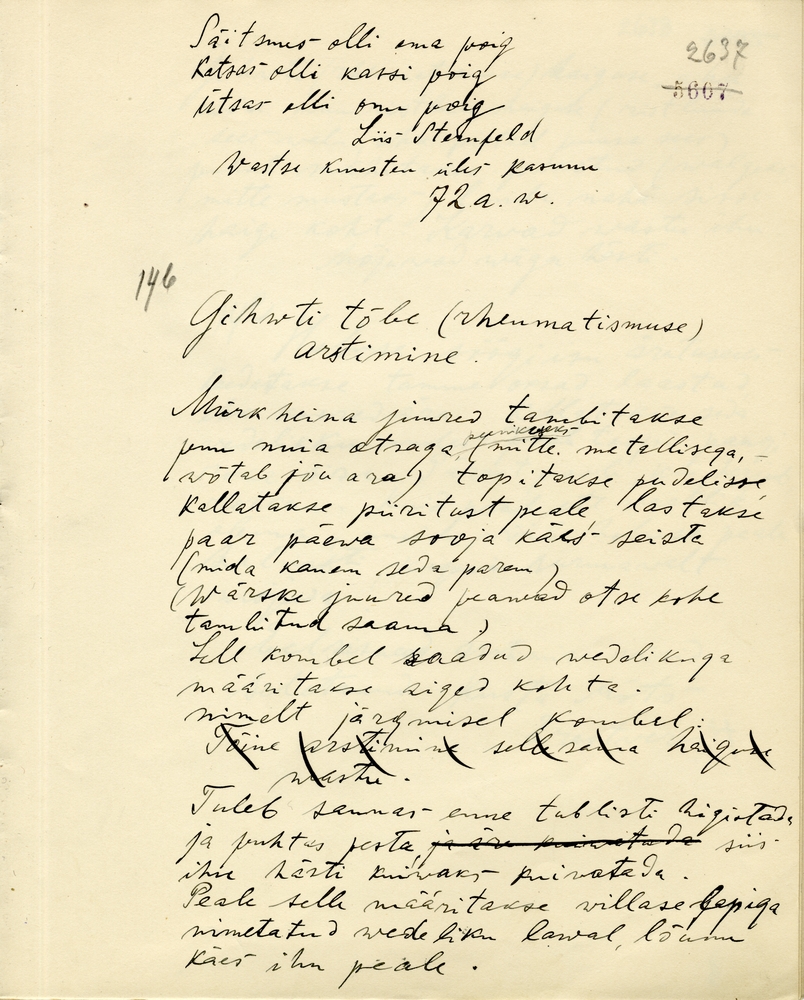 Säitsmes olli oma poig
Katsas olli kassi poig
ütsas olli oma poig
Liis Steinfeld
Wastse Kuusten üles kasunu
72 a. w.
2637
5607
146
Gihwti tõbe (rheumatismuse)
arstimine.
Mürkheina juured tambitakse
puu nuia otsaga (mitte. metallisega,
wõtab jõu ara) topitakse pudelisse,
Kallatakse piiritust peale, lastakse
paar päewa sooja käes seista
(mida kanem seda parem)
(Wärske juured peawad otse kohe
tambitud saama)
Sell kombel saadud wedelikuga
määritakse aiged kohta.
nimelt järgmisel kombel:
Tõine arstimine selle sama haiguse
wastu.
Tuleb saunas enne tublisti higistada
ja puhtas pesta, ja ära kuiwatada siis
ihu hästi kuiwaks kuiwatada.
Peale selle määritakse willase lapiga
nimetatud wedeliku lawal, lõunu
käes ihu peale.